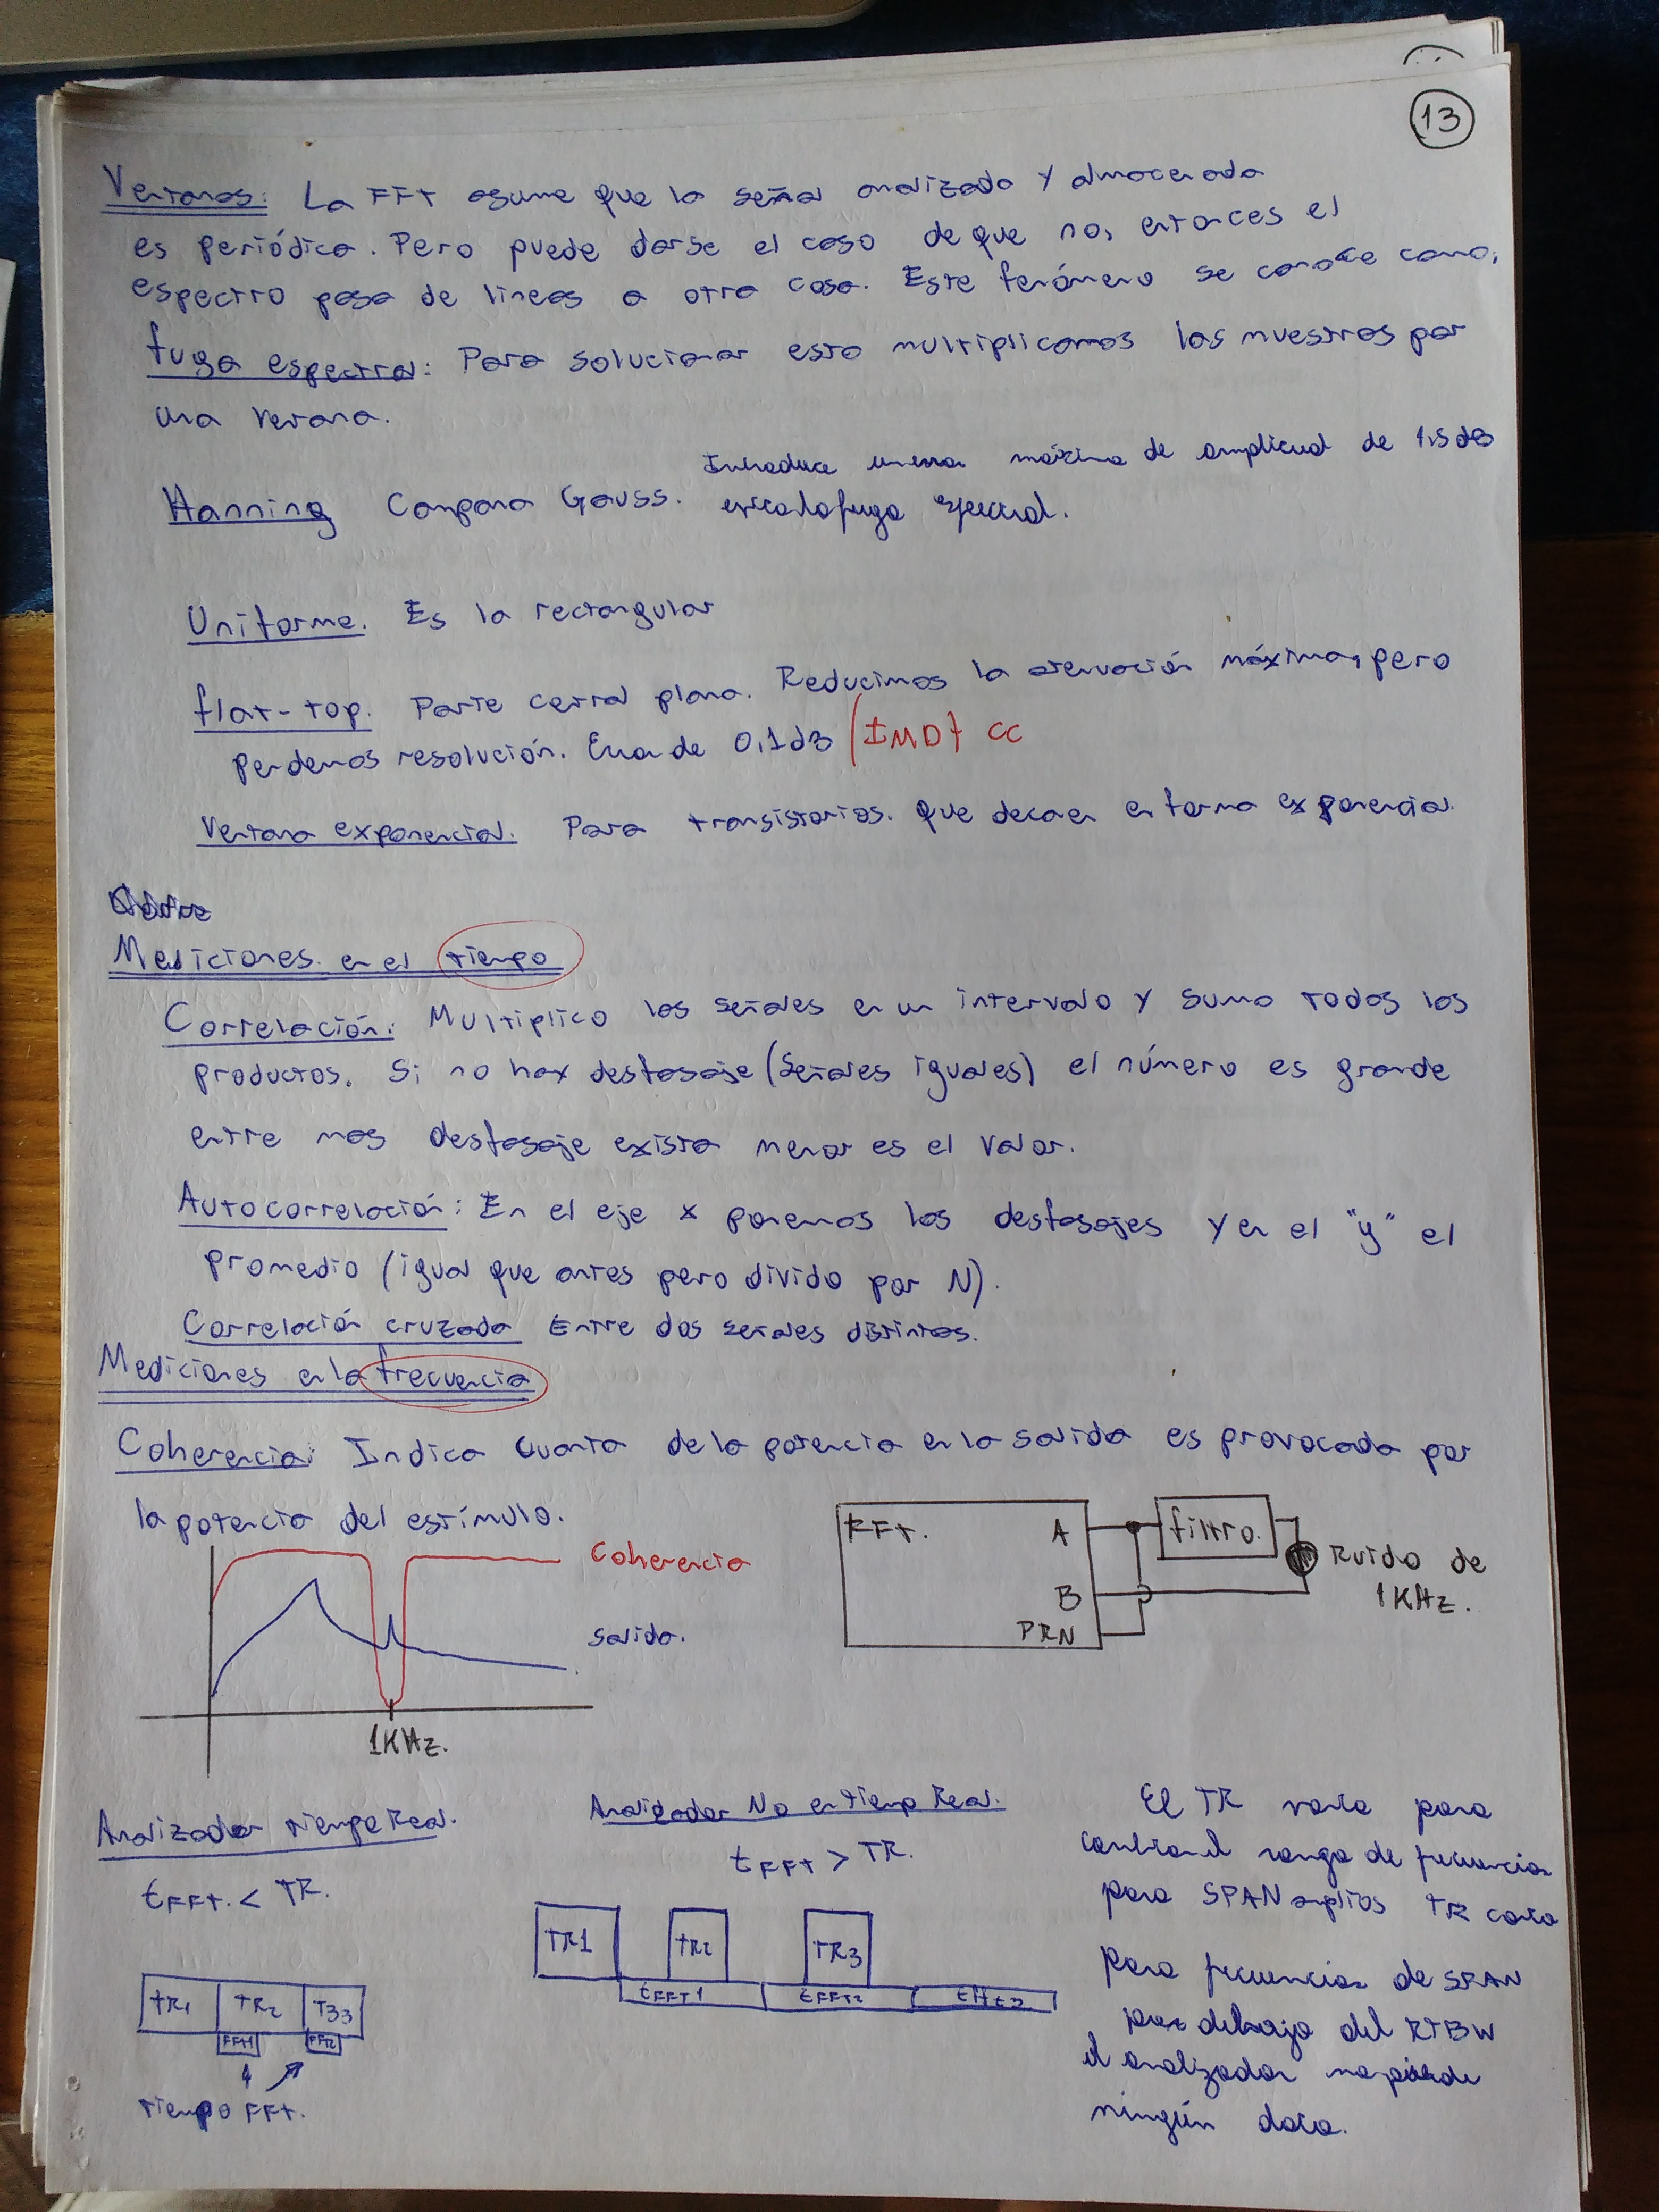 13
Ventanas: La FFT asume que la señal analizada y almacenada
es periódica. Pero puede darse el caso de que no, entonces el
espectro pasa de lineas a otra cosa. Este fenómeno se conoce como,
fuga espectral: Para solucionar esto multiplicamos las muestras por
una ventana.
Introduce un error máximo de amplitud de 1,5dB
Hanning Campana Gauss. evita la fuga espectral.
Uniforme. Es la rectangular
flat-top. Parte central plana. Reducimos la atenuación máxima, pero
perdemos resolución. Error de 0,1dB (IMD} CC
Ventana exponencial. Para transistorios. que decaen en forma exponencial.
Mediciones en el tiempo
Correlación: Multiplico las señales en un intervalo y sumo todos los
productos. Si no hay desfasaje (Señales iguales) el número es grande
entre mas desfasaje exista menor es el valor.
Autocorrelación: En el eje x ponemos los desfasajes y en el "y" el
promedio (igual que antes pero divido por N).
Correlación cruzada Entre dos señales distintas.
Mediciones en la frecuencia
Coherencia: Indica cuanta de la potencia en la salida es provocada por
la potencia del estímulo.
Coherencia
salida.
1KHz.
FFT.
A
B
PRN
filtro.
Ruido de
1KHz.
Analizador tiempo Real.
tFFT. < TR.
TR1 TR2 TR3
FFT1 FFT2
tiempo FFT.
Analizador No en tiempo Real.
tFFT > TR.
TR1 TR2 TR3
tFFT1 tFFT2 tFFT3
El TR varia para
cambiar el rango de frecuencia
para SPAN amplios TR corto
para frecuencias de SPAN
por debajo del RTBW
el analizador no pierde
ningún dato.